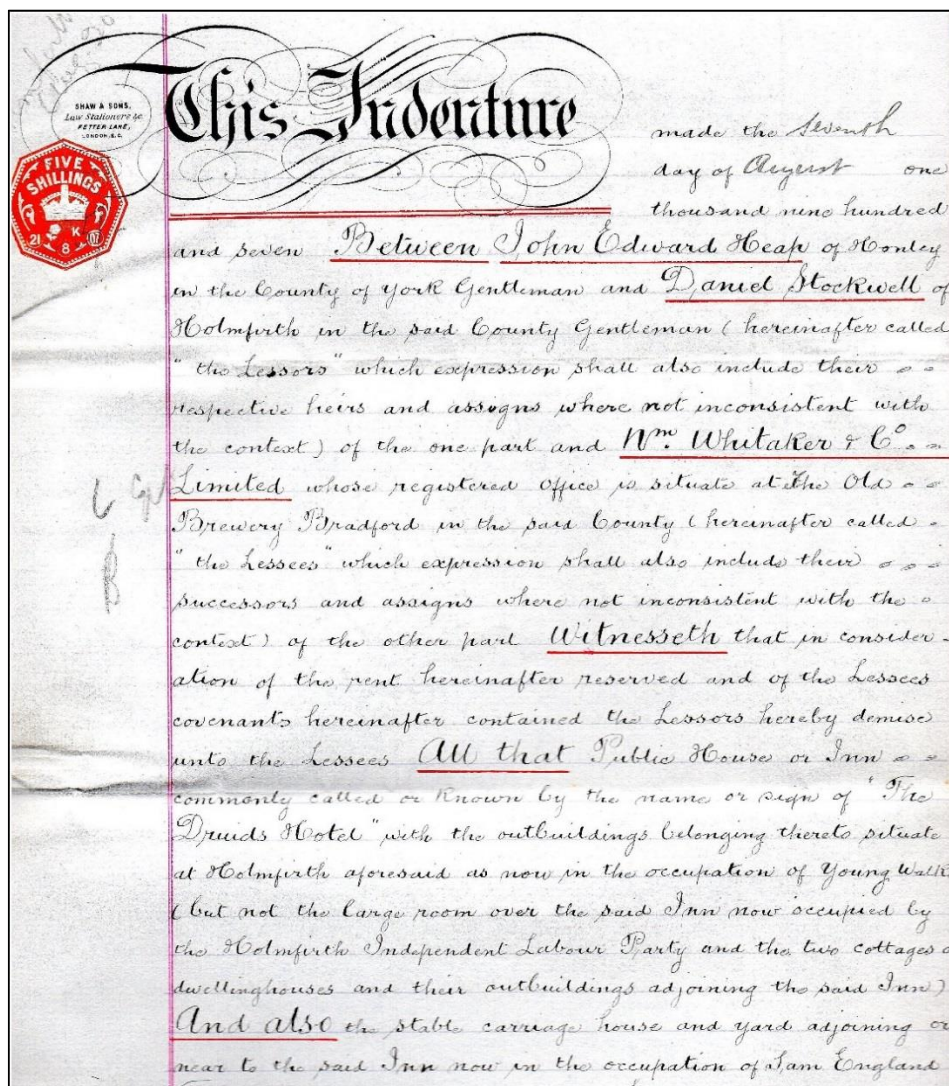 SHAW & SONS,
Law Stationers &c
FETTER LANE,
LONDON, E.C.
This Indenture
FIVE
SHILLINGS
K
21 8 07
made the Seventh
day of August one
thousand nine hundred
and seven Between John Edward Heap of Honley
in the County of York Gentleman and Daniel Stockwell of
Holmfirth in the said County Gentleman (hereinafter called
"the Lessors" which expression shall also include their
respective heirs and assigns where not inconsistent with
the context) of the one part and Wm. Whitaker & Co.
Limited whose registered office is situate at The Old
Brewery Bradford in the said County (hereinafter called
"the Lessees" which expression shall also include their
successors and assigns where not inconsistent with the
context) of the other part Witnesseth that in consider-
ation of the rent hereinafter reserved and of the Lessees
covenants hereinafter contained the Lessors hereby demise
unto the Lessees All that Public House or Inn
commonly called or Known by the name or sign of "The
Druids Hotel" with the outbuildings belonging thereto situate
at Holmfirth aforesaid as now in the occupation of Young Walk
(but not the large room over the said Inn now occupied by
the Holmfirth Independent Labour Party and the two cottages
dwellinghouses and their outbuildings adjoining the said Inn)
And also the stable carriage house and yard adjoining or
near to the said Inn now in the occupation of Sam England